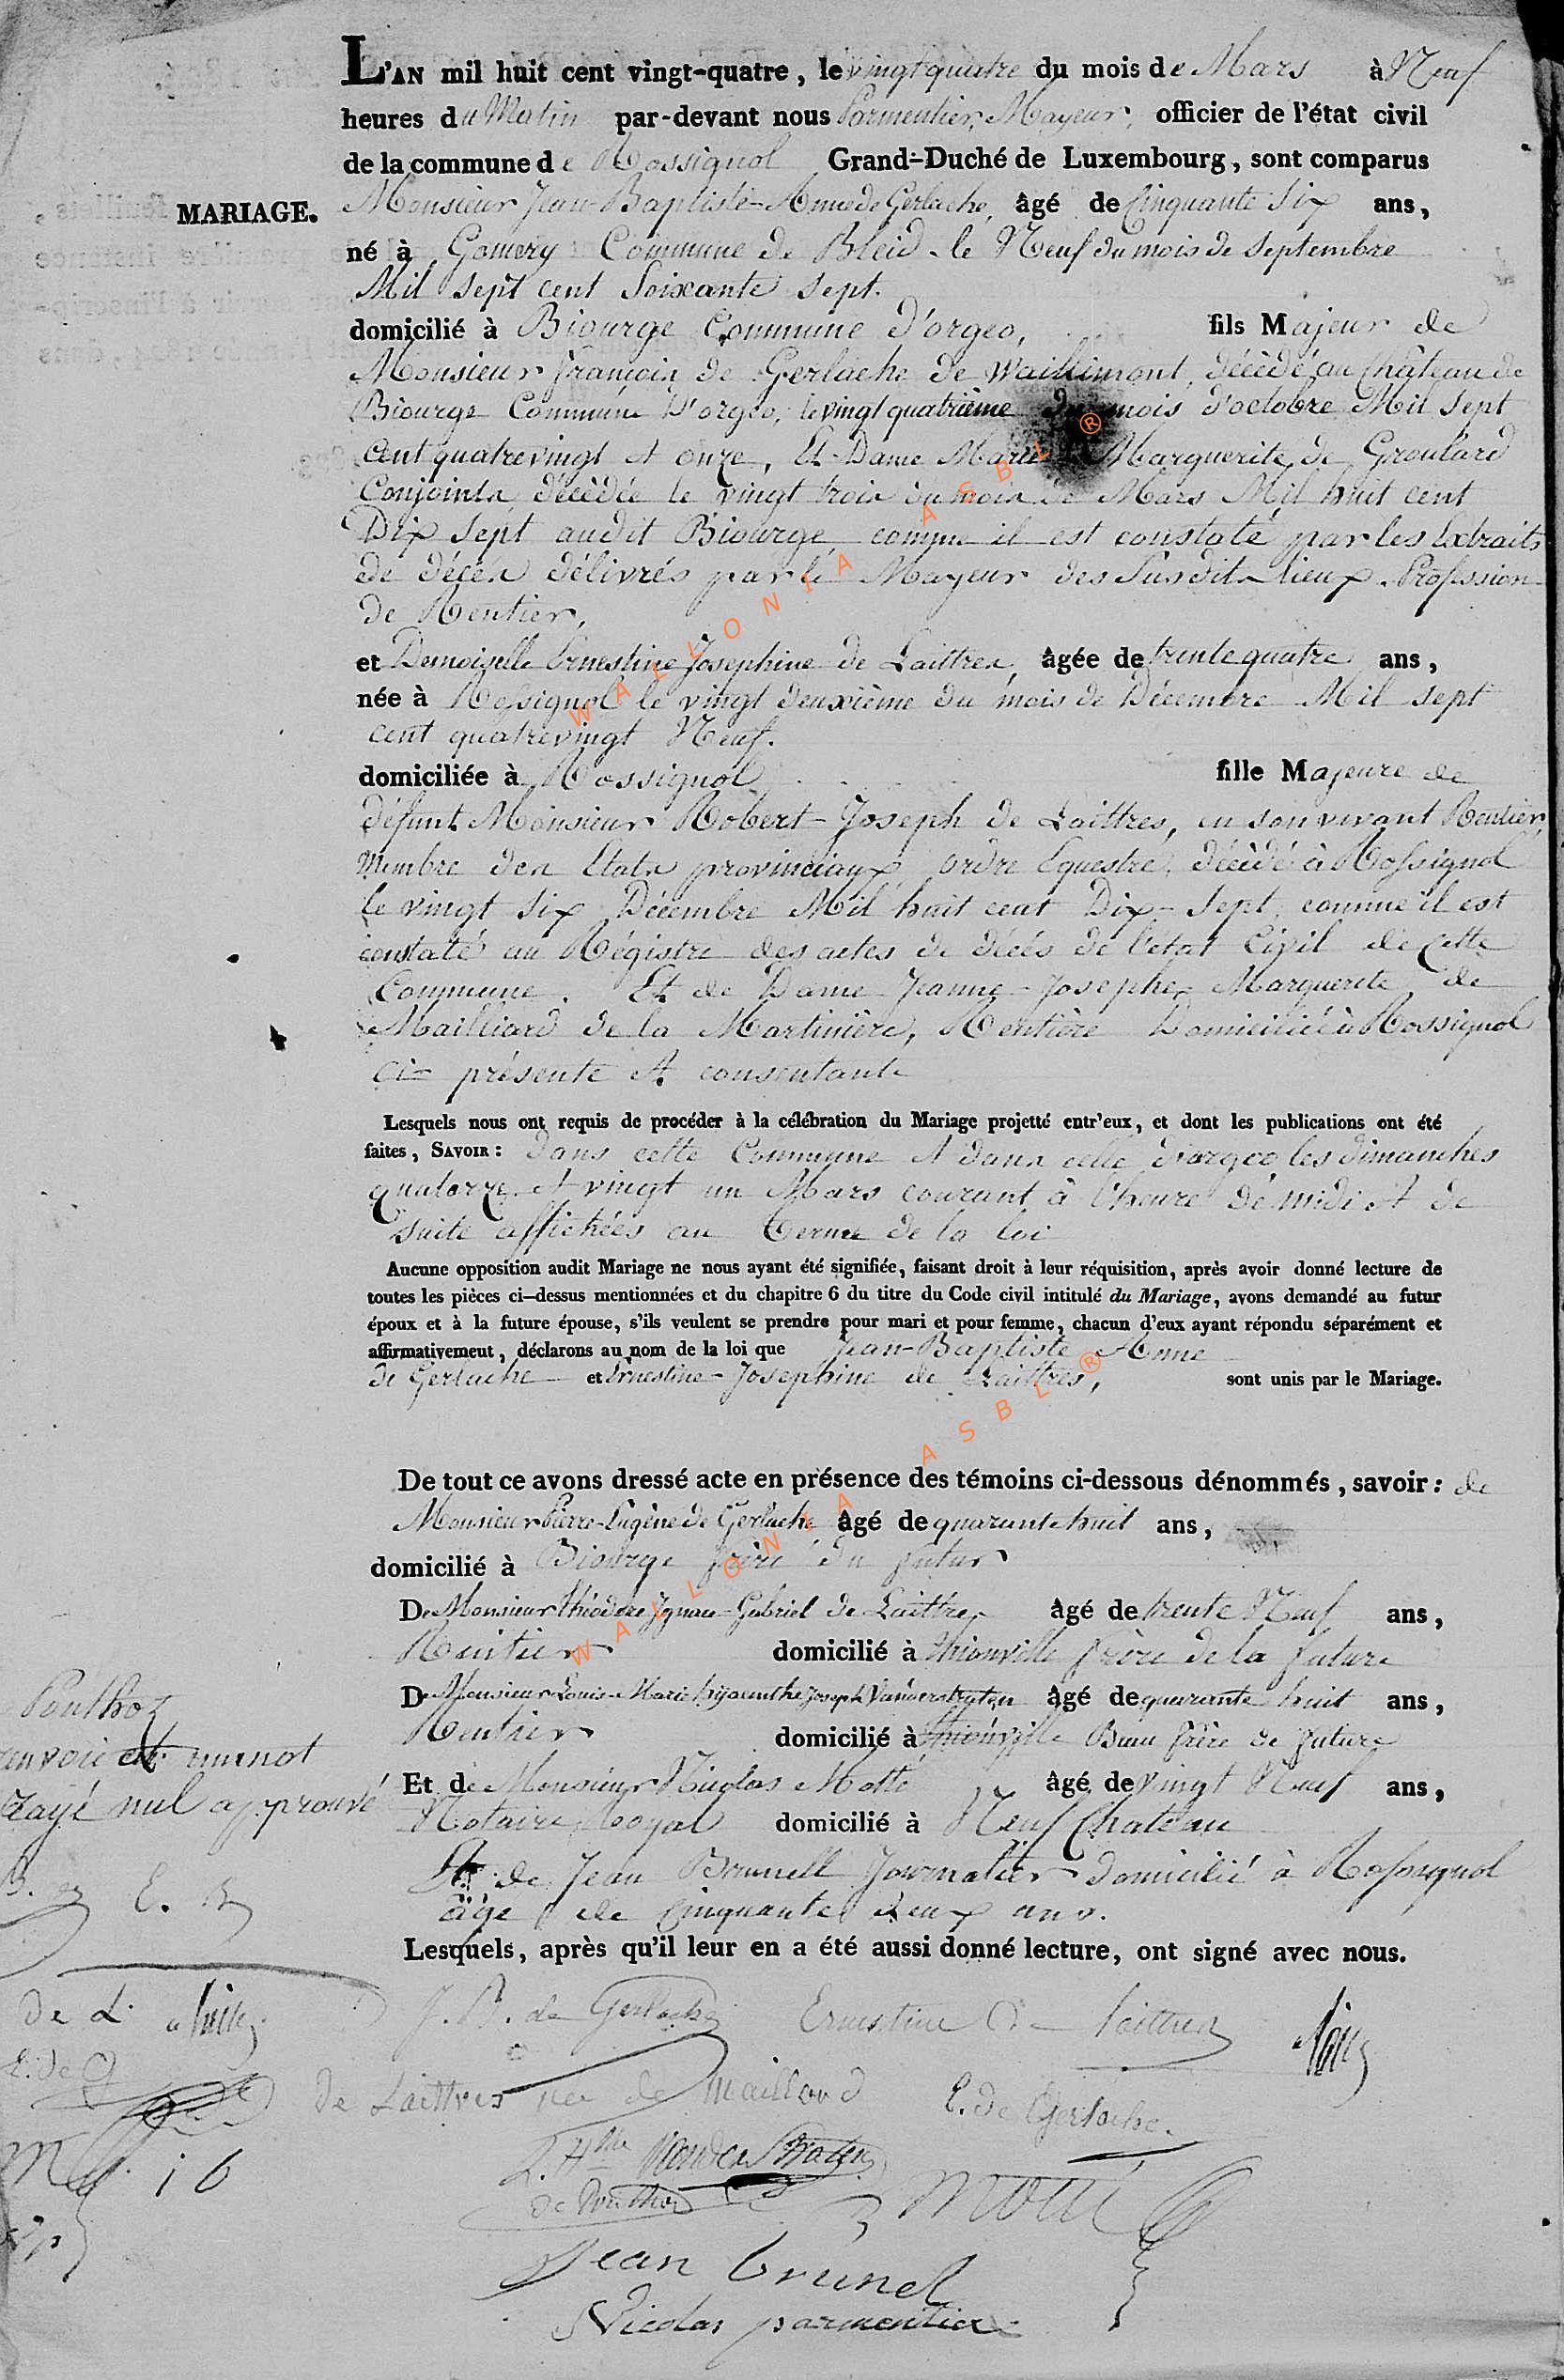 L'AN mil huit cent vingt-quatre, le vingt quatre du mois de Mars à Neuf
heures du Matin par-devant nous Parmentier, Mayeur, officier de l'état civil
de la commune de Rossignol Grand-Duché de Luxembourg, sont comparus
MARIAGE.
Monsieur Jean-Baptiste-Anne de Gerlache, âgé de Cinquante Six ans,
né à Gomery Commune de Bleid le Neuf du mois de Septembre
Mil Sept cent Soixante Sept.
domicilié à Biourge Commune d'orgeo, fils Majeur de
Monsieur françois de Gerlache de Waillimont, décédé au Château de
Biourge Commune d'orgeo, le vingt quatrième du mois d'octobre Mil Sept
Cent quatrevingt et onze, Et Dame Marie Marguerite de Groulard
Conjointe, décédée le vingt trois du mois de Mars Mil huit cent
Dix Sept audit Biourge comme il est constaté par les Extraits
de décès délivrés par le Mayeur des Susdits lieux. Profession
de Rentier,
et Demoiselle Ernestine Josephine de Laittres, âgée de trente quatre ans,
née à Rossignol le vingt deuxième du mois de Décembre Mil Sept
cent quatrevingt Neuf.
domiciliée à Rossignol fille Majeure de
défunt Monsieur Robert-Joseph de Laittres, en son vivant Rentier,
Membre des Etats provinciaux ordre Equestre, décédé à Rossignol
le vingt Six Décembre Mil huit cent Dix-Sept, comme il est
constaté au Régistre des actes de décès de l'état Civil de cette
Commune. Et de Dame Jeanne-Josephe Marguerite de
Mailliard de la Martinière, Rentière Domiciliée à Rossignol
Ci-présente et consentante
Lesquels nous ont requis de procéder à la célébration du Mariage projetté entr'eux, et dont les publications ont été
faites, SAVOIR: Dans cette Commune et dans celle d'orgeo les dimanches
quatorze et vingt un Mars courant à l'heure de midi et de
Suite affichées au Terme de la loi
Aucune opposition audit Mariage ne nous ayant été signifiée, faisant droit à leur réquisition, après avoir donné lecture de
toutes les pièces ci-dessus mentionnées et du chapitre 6 du titre du Code civil intitulé du Mariage, avons demandé au futur
époux et à la future épouse, s'ils veulent se prendre pour mari et pour femme, chacun d'eux ayant répondu séparément et
affirmativement, déclarons au nom de la loi que Jean-Baptiste Anne
de Gerlache et Ernestine-Josephine de Laittres, sont unis par le Mariage.
De tout ce avons dressé acte en présence des témoins ci-dessous dénommés, savoir: de
Monsieur Pierre-Eugène de Gerlache âgé de quarante huit ans,
domicilié à Biourge frère du futur
De Monsieur Théodore Ignace-Gabriel de Laittres âgé de trente Neuf ans,
Rentier domicilié à Thionville frère de la future
De Monsieur Louis-Marie hyacinthe Joseph Vanderstraten âgé de quarante huit ans,
Rentier domicilié à Thionville Beau frère de future
Et de Monsieur Nicolas Motté âgé de vingt Neuf ans,
Notaire Royal domicilié à Neuf Chateau
Et de Jean Brunell Journalier domicilié à Rossignol
âgé de Cinquante deux ans.
Lesquels, après qu'il leur en a été aussi donné lecture, ont signé avec nous.
Ponthoz
renvoie et un mot
rayé nul approuvé
de L.
E. de G
J. B. de Gerlache Ernestine De Laittres
de Laittres née de Maillard E. de Gerlache.
L. Hthe Vander Straten
de Ponthoz Motté
Jean brunel
Nicolas parmentier
WALLONIA ASBL ®
WALLONIA ASBL ®